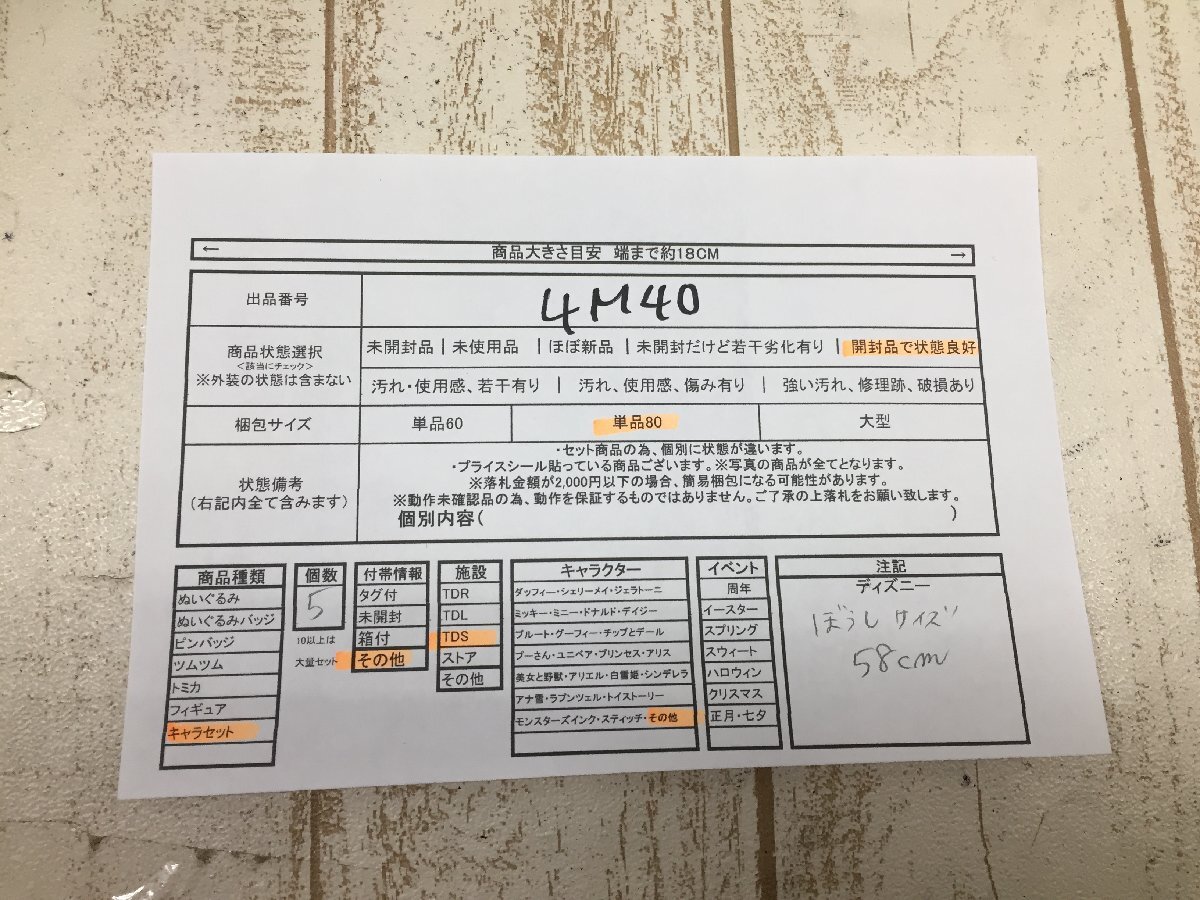 ← 商品大きさ目安 端まで約18CM →
出品番号 4M40
商品状態選択
<該当にチェック>
※外装の状態は含まない
未開封品 | 未使用品 | ほぼ新品 | 未開封だけど若干劣化有り | 開封品で状態良好
汚れ・使用感、若干有り | 汚れ、使用感、傷み有り | 強い汚れ、修理跡、破損あり
梱包サイズ 単品60 単品80 大型
状態備考
(右記内全て含みます)
・セット商品の為、個別に状態が違います。
・プライスシール貼っている商品ございます。※写真の商品が全てとなります。
※落札金額が2,000円以下の場合、簡易梱包になる可能性があります。
※動作未確認品の為、動作を保証するものではありません。ご了承の上落札をお願い致します。
個別内容( )
商品種類
ぬいぐるみ
ぬいぐるみバッジ
ピンバッジ
ツムツム
トミカ
フィギュア
キャラセット
個数
5
10以上は
大量セット
付帯情報
タグ付
未開封
箱付
その他
施設
TDR
TDL
TDS
ストア
その他
キャラクター
ダッフィー・シェリーメイ・ジェラトーニ
ミッキー・ミニー・ドナルド・デイジー
プルート・グーフィー・チップとデール
プーさん・ユニベア・プリンセス・アリス
美女と野獣・アリエル・白雪姫・シンデレラ
アナ雪・ラプンツェル・トイストーリー
モンスターズインク・スティッチ・その他
イベント
周年
イースター
スプリング
スウィート
ハロウィン
クリスマス
正月・七夕
注記
ディズニー
ぼうしサイズ
58cm